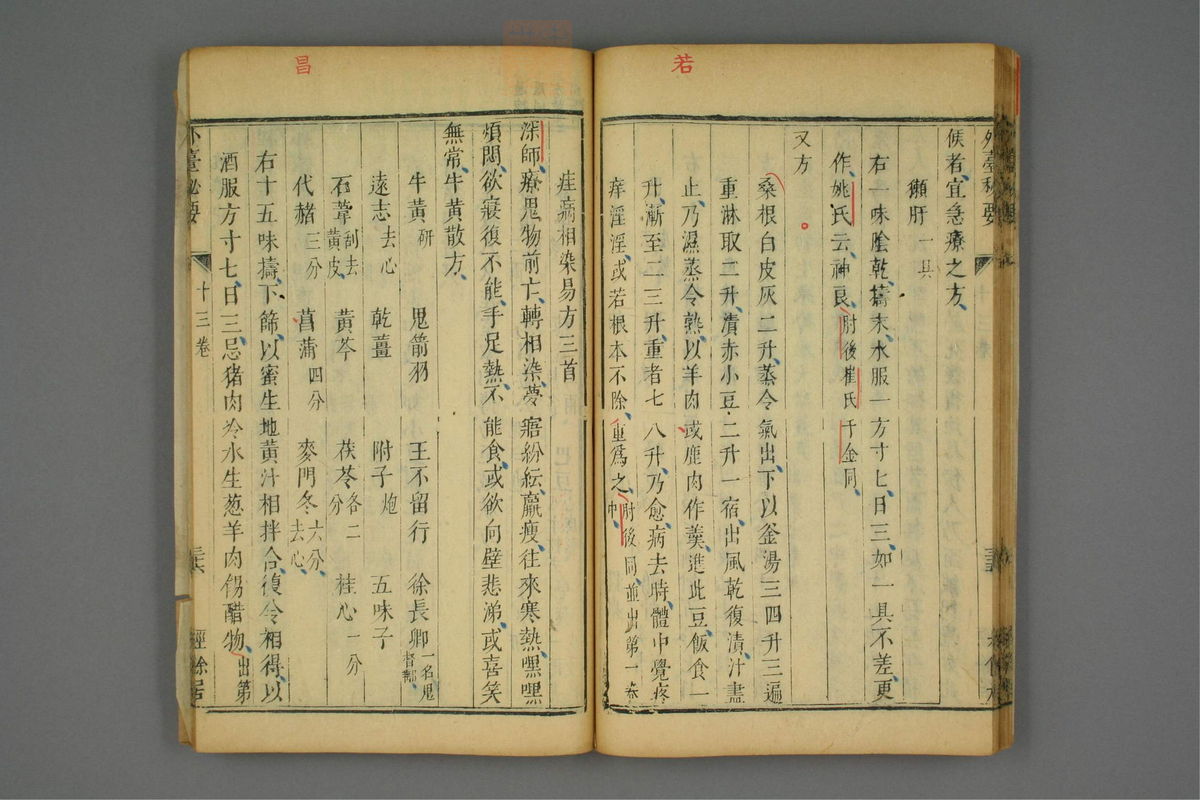 若
外臺秘要
候者宜急療之方
獺肝一具
右一味陰乾擣末水服一方寸七日三如一具不差更
作姚氏云神良肘後崔氏千金同
又方
桑根白皮灰二升蒸令氣出下以釜湯三四升三遍
重淋取二升漬赤小豆二升一宿出風乾復漬汁盡
止乃濕蒸令熟以羊肉或鹿肉作羹進此豆飯食一
升漸至二三升重者七八升乃愈病去時體中覺疼
痒淫淫或若根本不除重爲之肘後同並出第一卷中
昌
疰病相染易方三首
深師療鬼物前亡轉相染夢寤紛紜羸瘦往來寒熱嘿嘿
煩悶欲寢復不能手足熱不能食或欲向壁悲涕或喜笑
無常牛黃散方
牛黃研 鬼箭羽 王不留行 徐長卿一名鬼督郵
遠志去心 乾薑 附子炮 五味子
石葦刮去黃皮 黃芩 茯苓各二分 桂心一分
代赭三分 菖蒲四分 麥門冬六分去心
右十五味擣下篩以蜜生地黃汁相拌合復令相得以
酒服方寸七日三忌猪肉冷水生葱羊肉餳醋物出第
外臺秘要 十三卷 三六 經餘居